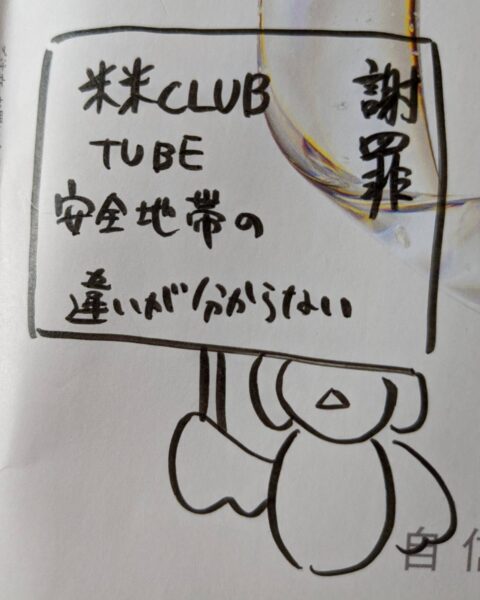 謝罪
米米CLUB
TUBE
安全地帯の
違いが分からない
自信